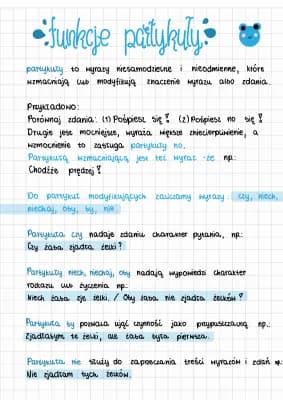 funkcje partykuły
partykuły to wyrazy niesamodzielne i nieodmienne, które
wzmacniają lub modyfikują znaczenie wyrazu albo zdania.
Przykładowo:
Porównaj zdania: (1) Pośpiesz się! (2) Pośpiesz no się!
Drugie jest mocniejsze, wyraża większe zniecierpliwienie, a
wzmocnienie to zasługa partykuły no.
Partykułą wzmacniającą jest też wyraz -że np:
Chodźże prędzej!
Do partykuł modyfikujących zaliczamy wyrazy: czy, niech,
niechaj, oby, by, nie.
Partykuła czy nadaje zdaniu charakter pytania, np.:
Czy żaba zjadła żelki?
Partykuły niech, niechaj, oby nadają wypowiedzi charakter
rozkazu lub życzenia np.:
Niech żaba zje żelki. / Oby żaba nie zjadła żelków!
Partykuła by pozwala ująć czynność jako przypuszczalną np.:
Zjadłabym te żelki, ale żaba była pierwsza.
Partykuła nie służy do zaprzeczania treści wyrazów i zdań np:
Nie zjadłam tych żelków.